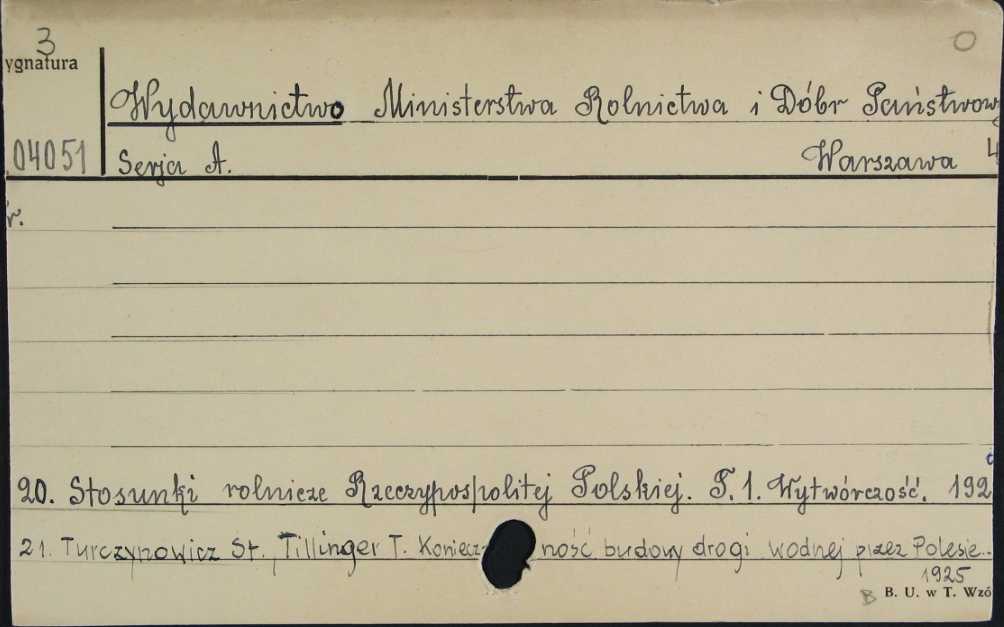 3
ygnatura
O
Wydawnictwo Ministerstwa Rolnictwa i Dóbr Państwow
04051
Serja A. Warszawa 4
r.
20. Stosunki rolnicze Rzeczypospolitej Polskiej. T. 1. Wytwórczość. 192
21. Turczynowicz St., Tillinger T. Koniecz ność budowy drogi wodnej przez Polesie.
1925
B B. U. w T. Wzó